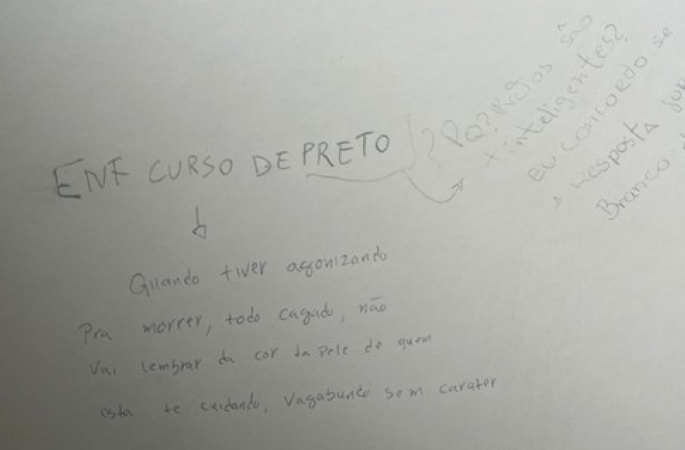 ENF CURSO DE PRETO
Quando tiver agonizando
Pra morrer, todo cagado, não
Vai lembrar da cor da pele de quem
esta te cuidando, Vagabundo sem carater
? PQ? Pretos são
+ inteligentes?
EU CONCORDO se
a Resposta for
Branco